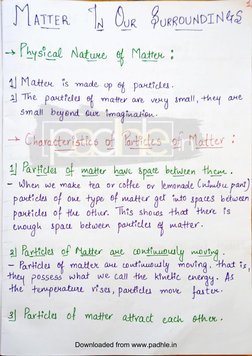 MATTER IN OUR SURROUNDINGS
→ Physical Nature of Matter :
1] Matter is made up of particles.
2] The particles of matter are very small, they are
small beyond our imagination.
→ Characteristics of Particles of Matter :
padhle
1] Particles of matter have space between them.
- When we make tea or coffee or lemonade (nimbu pani)
particles of one type of matter get into spaces between
particles of the other. This shows that there is
enough space between particles of matter.
2] Particles of Matter are continuously moving.
- Particles of matter are continuously moving, that is,
they possess what we call the kinetic energy. As
the temperature rises, particles move faster.
3] Particles of matter attract each other.
Downloaded from www.padhle.in